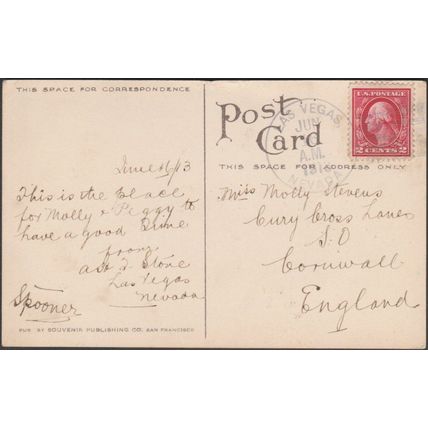 THIS SPACE FOR CORRESPONDENCE
June 16/13
This is the place
for Molly & Peggy to
have a good time
from
Stone
Las Vegas
Nevada
Spooner
PUB. BY SOUVENIR PUBLISHING CO. SAN FRANCISCO
Post Card
THIS SPACE FOR ADDRESS ONLY
LAS VEGAS
JUN
A.M.
U.S. POSTAGE
2 CENTS 2
Miss Molly Stevens
Cury Cross Lanes
S.O
Cornwall
England